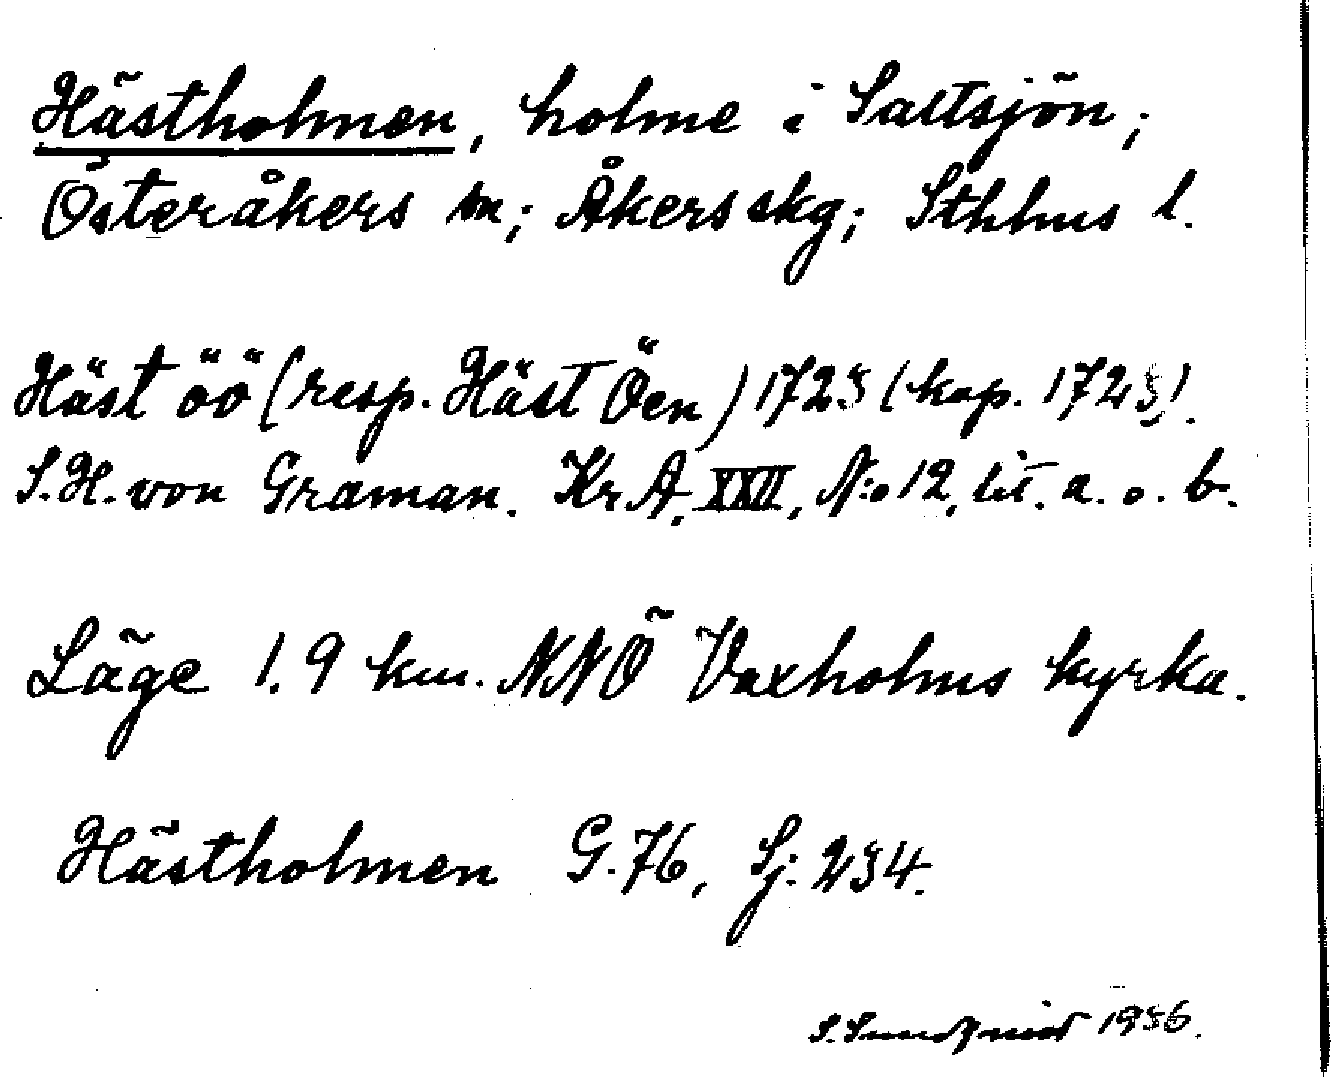 Hästholmen, holme i Saltsjön;
Österåkers sn; Åkers skg; Sthlms l.
Häst öö (resp. Häst Öen) 1723 (kop. 1723).
S.H. von Graman. Kr A, XXII, N:o 12, lit. a. o. b.
Läge 1.9 km. NNÖ Vaxholms kyrka.
Hästholmen G.76, Sj: 234.
S. Sundqvist 1936.